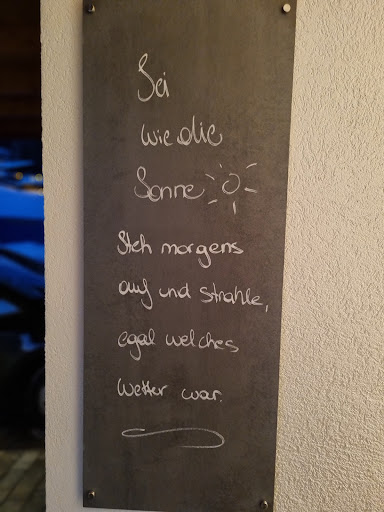 Sei
wie die
Sonne
Steh morgens
auf und strahle,
egal welches
Wetter war.